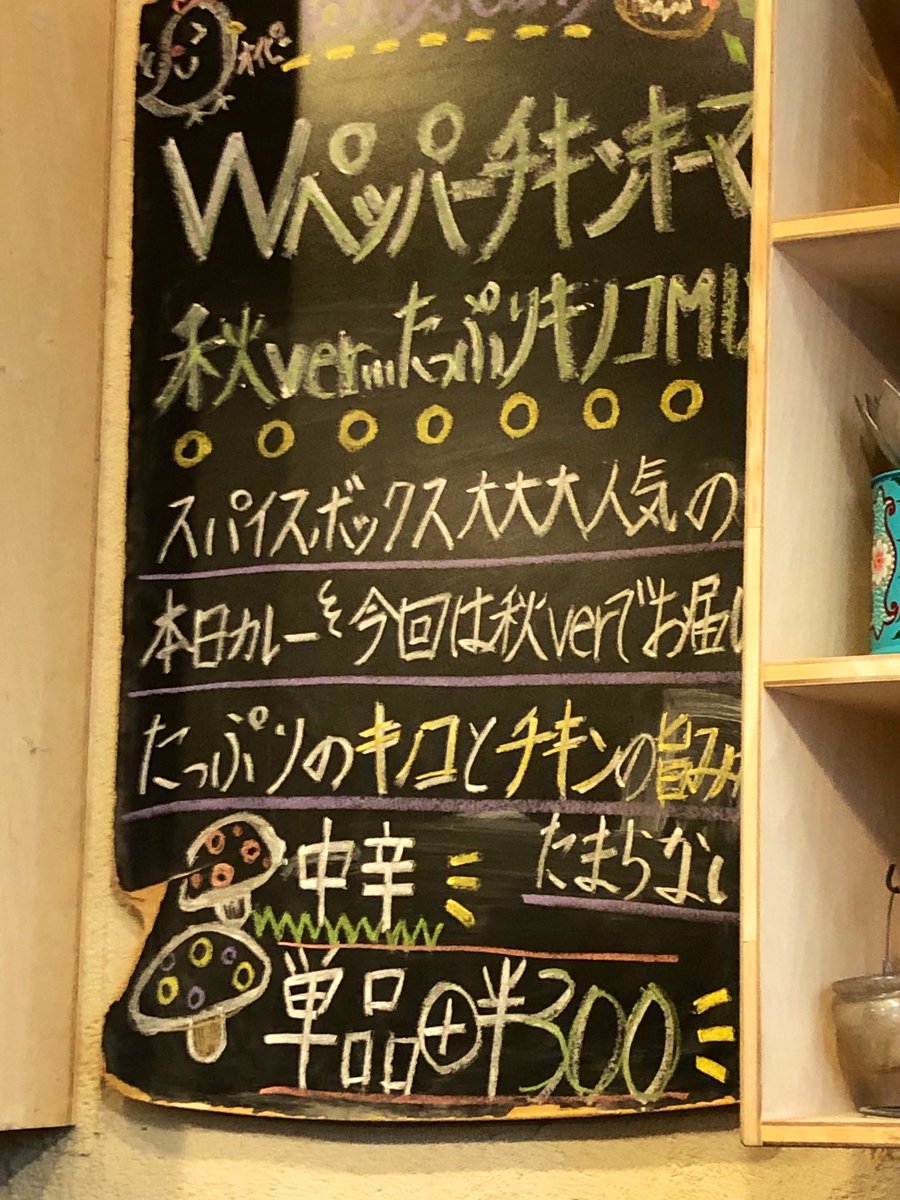 オイピー
Wペッパーチキンキーマ
秋ver...たっぷりキノコMU
スパイスボックス大大大人気の
本日カレーを今回は秋verでお届し
たっぷりのキノコとチキンの旨み
中辛
たまらない
単品⊕半300